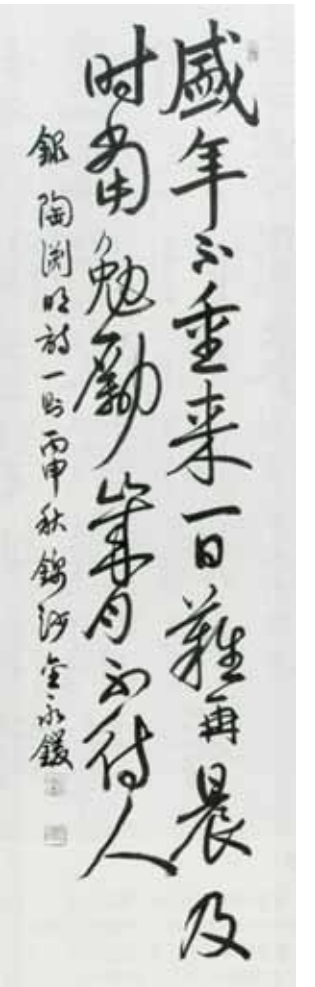 盛年不重来一日難再晨及
时當勉勵歲月不待人
録陶渊明詩一則丙申秋錦沙金永